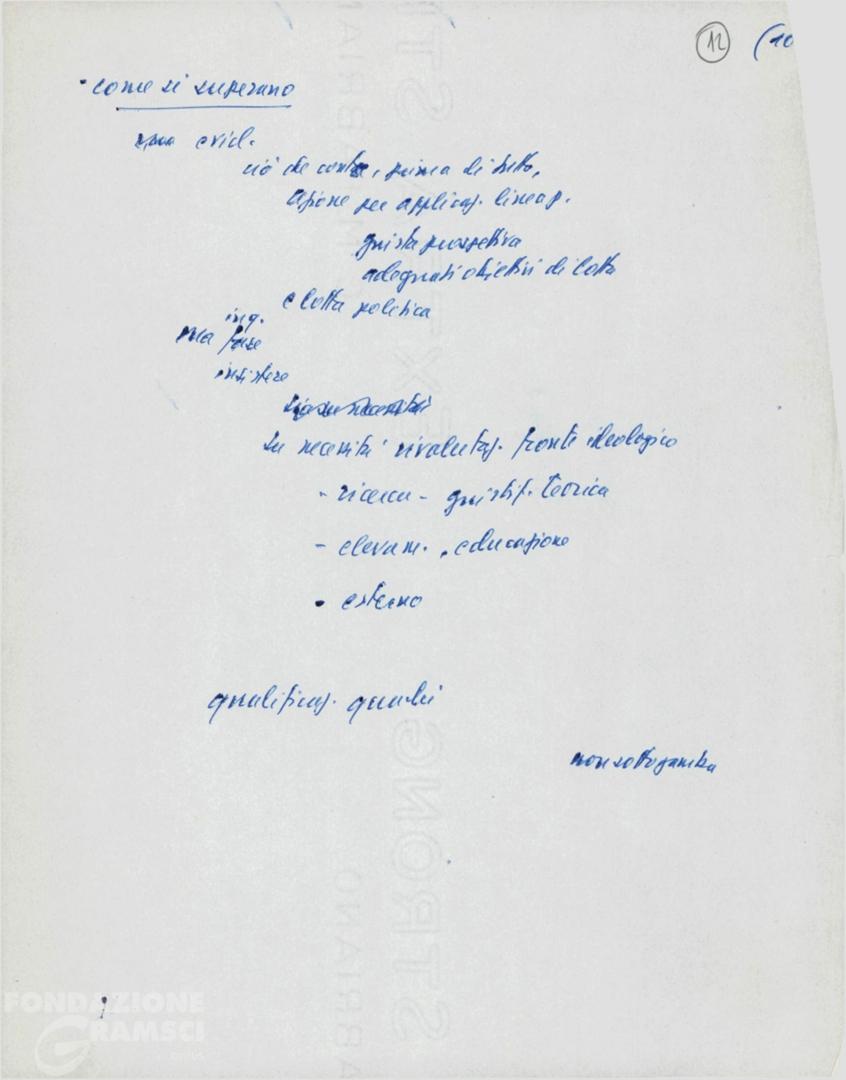 12 (10
• come si superano
evid.
ciò che conta, prima di tutto,
azione per applicaz. linea p.
giusta prospettiva
adeguati obiettivi di lotta
e lotta politica
ing.
ma forse
insistere
su necessità rivalutaz. fronte ideologico
- ricerca - giustif. teorica
- elevam., educazione
• esterno
qualificaz. quadri
non sottogamba
FONDAZIONE
GRAMSCI